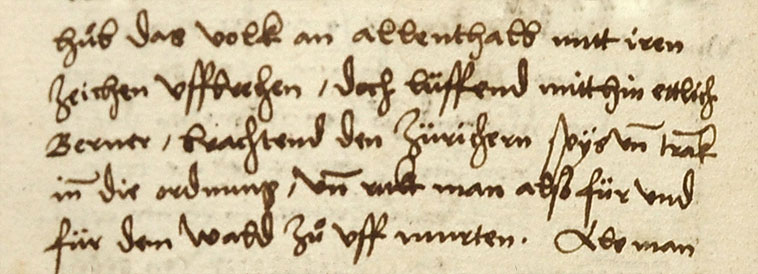 hůb das volk an allenthalb mitt iren
zeichen uffbrechen / doch lüffend mitthin ettlich
Berner / brachtend den Zürichern spys un̄ trak
in̄ die ordnung / un̄ rukt man also für und
für dem wald zů uff murten . Als man